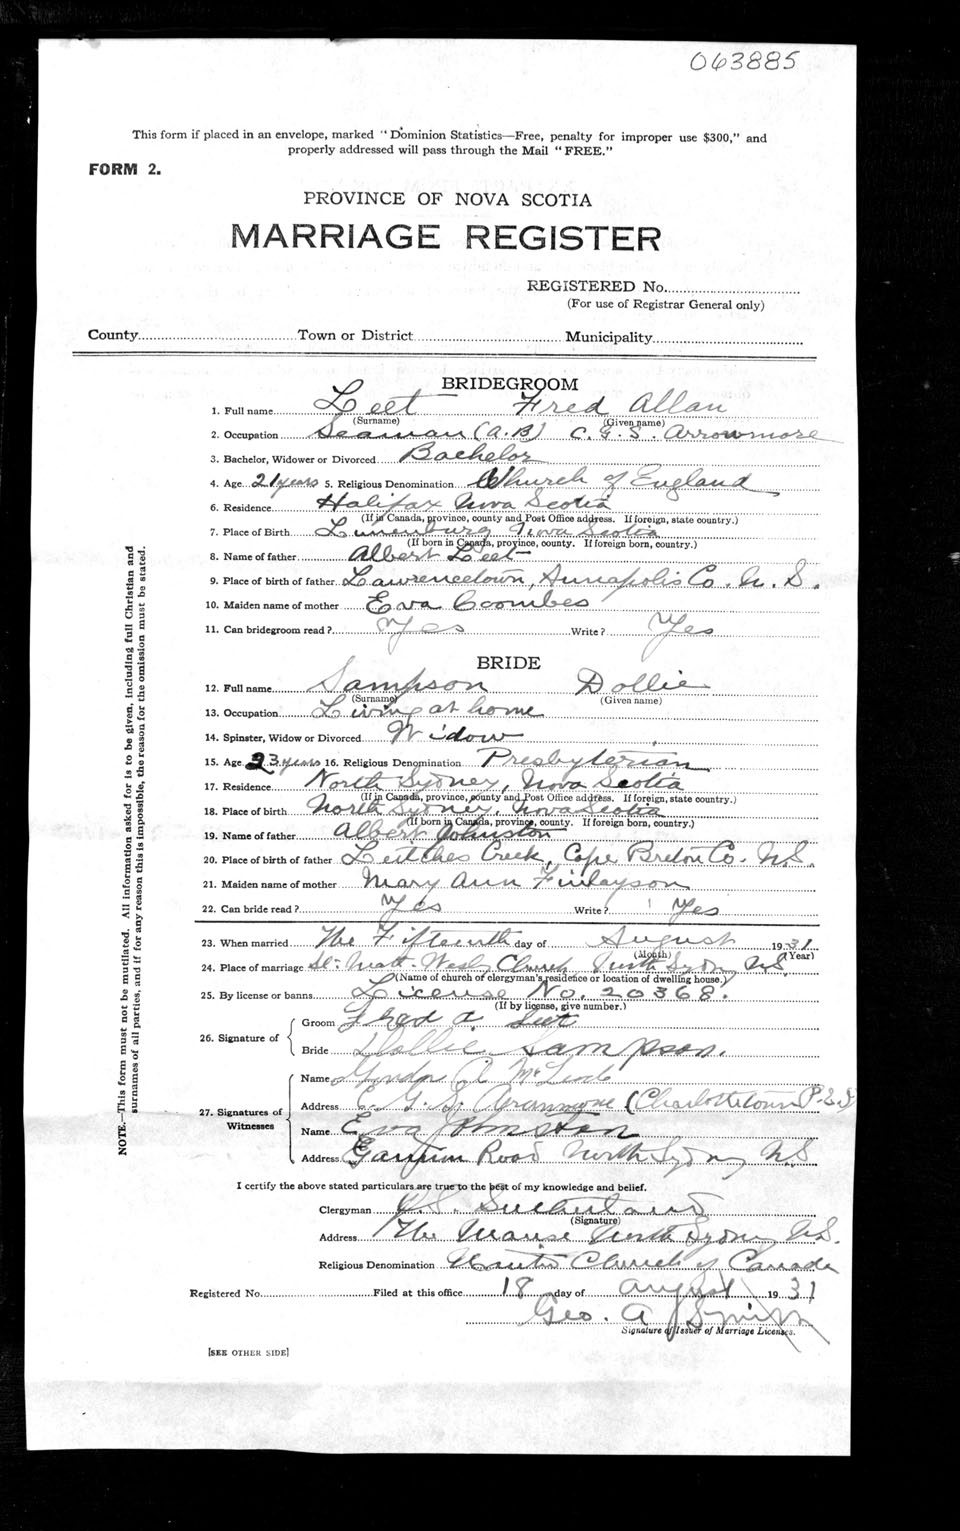 063885
This form if placed in an envelope, marked "Dominion Statistics—Free, penalty for improper use $300," and
properly addressed will pass through the Mail "FREE."
FORM 2.
PROVINCE OF NOVA SCOTIA
MARRIAGE REGISTER
REGISTERED No.
(For use of Registrar General only)
County Town or District Municipality
BRIDEGROOM
1. Full name Leet Fred Allan
(Surname) (Given name)
2. Occupation Seaman (A.B) C.G.S. Arrowmore
3. Bachelor, Widower or Divorced Bachelor
4. Age 21 years 5. Religious Denomination Church of England
6. Residence Halifax Nova Scotia
(If in Canada, province, county and Post Office address. If foreign, state country.)
7. Place of Birth Lunenburg Nova Scotia
(If born in Canada, province, county. If foreign born, country.)
8. Name of father Albert Leet
9. Place of birth of father Lawrencetown, Annapolis Co. N. S.
10. Maiden name of mother Eva Coombes
11. Can bridegroom read? Yes Write? Yes
BRIDE
12. Full name Sampson Dollie
(Surname) (Given name)
13. Occupation Living at home
14. Spinster, Widow or Divorced Widow
15. Age 23 years 16. Religious Denomination Presbyterian
17. Residence North Sydney, Nova Scotia
(If in Canada, province, county and Post Office address. If foreign, state country.)
18. Place of birth North Sydney, Nova Scotia
(If born in Canada, province, county. If foreign born, country.)
19. Name of father Albert Johnston
20. Place of birth of father Leitches Creek, Cape Breton Co. N.S.
21. Maiden name of mother Mary Ann Finlayson
22. Can bride read? Yes Write? Yes
23. When married The Fifteenth day of August 1931
(Month) (Year)
24. Place of marriage St. Matt. Wesley Church North Sydney NS
(Name of church of clergyman's residence or location of dwelling house.)
25. By license or banns License No. 20368.
(If by license, give number.)
26. Signature of
Groom Fred A. Leet
Bride Dollie Sampson.
27. Signatures of Witnesses
Name
Address C.G.S. (Charlottetown P.E.I)
Name Eva Johnston
Address Road North Sydney NS
I certify the above stated particulars are true to the best of my knowledge and belief.
Clergyman Sutherland
(Signature)
Address The Manse North Sydney NS.
Religious Denomination United Church of Canada
Registered No. Filed at this office 18 day of August 1931
Geo. A Smith
Signature of Issuer of Marriage Licenses.
[SEE OTHER SIDE]
NOTE.—This form must not be mutilated. All information asked for is to be given, including full Christian and
surnames of all parties, and if for any reason this is impossible, the reason for the omission must be stated.